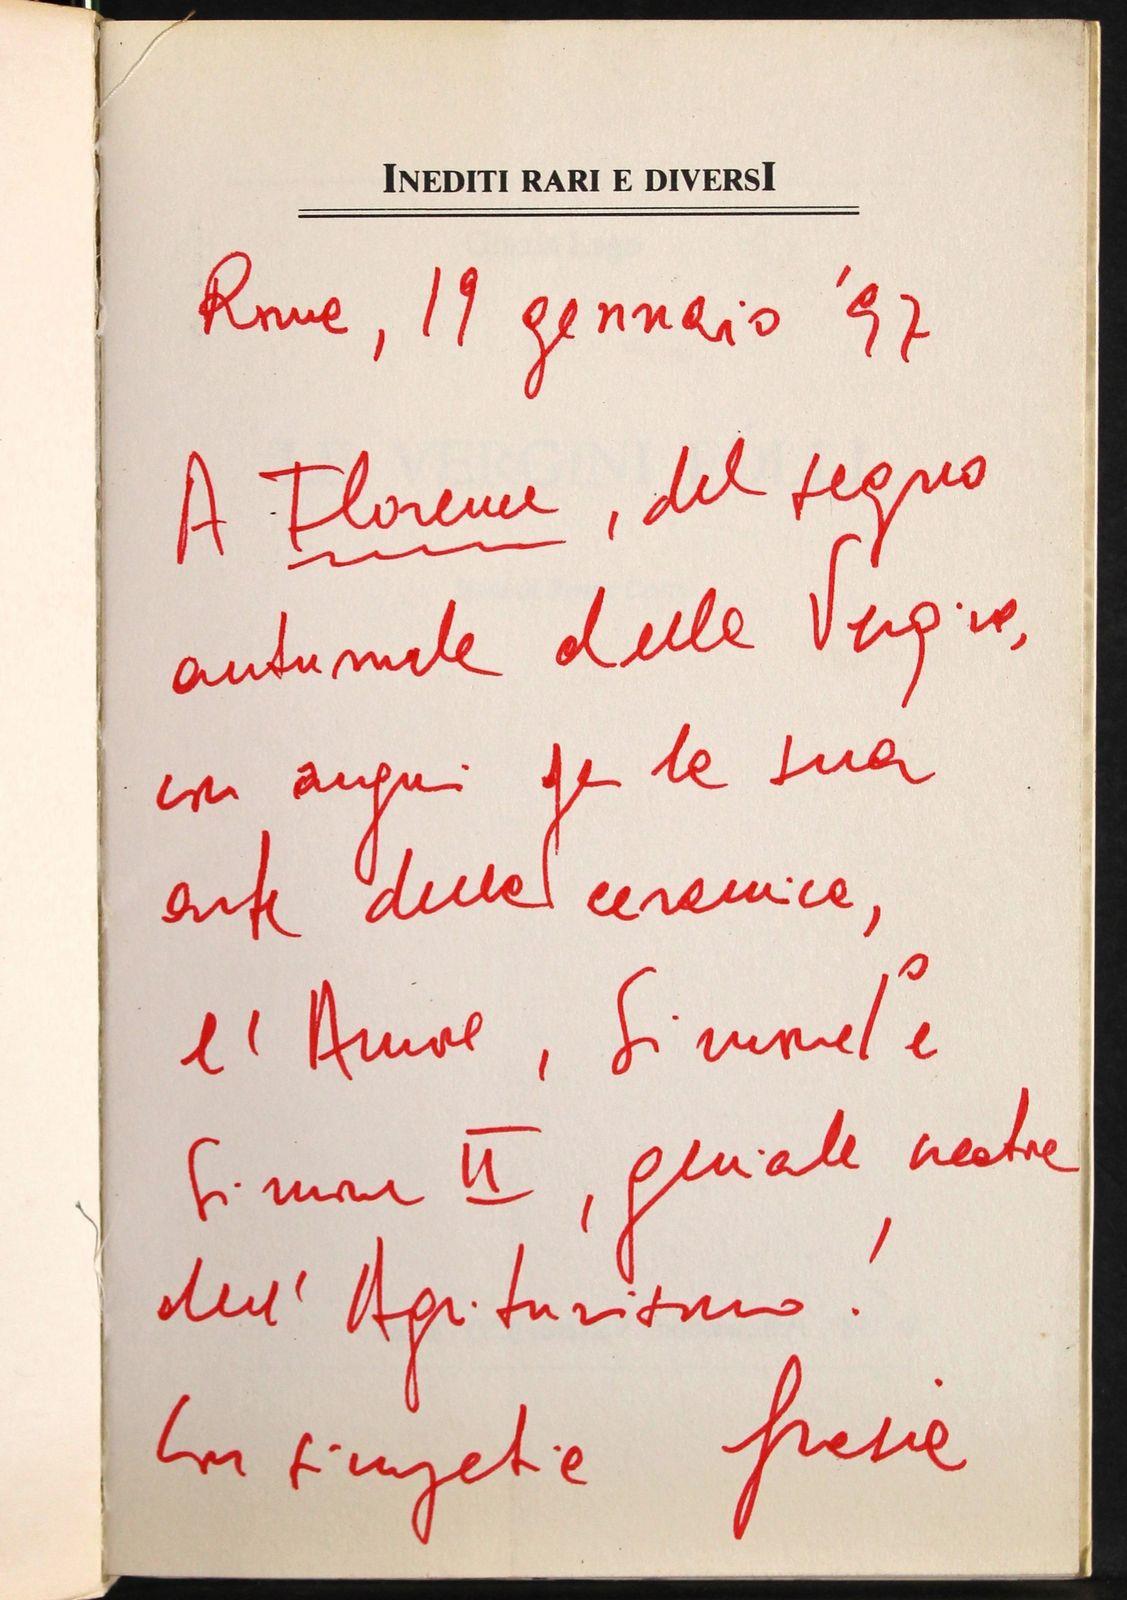 INEDITI RARI E DIVERSI
Roma, 19 gennaio '97
A Florence, del segno
autunnale della Vergine,
con auguri per la sua
arte della ceramica,
l'Amore, Simone I° e
Simone II, geniale
dell'Agriturismo!
Con simpatia Grazia